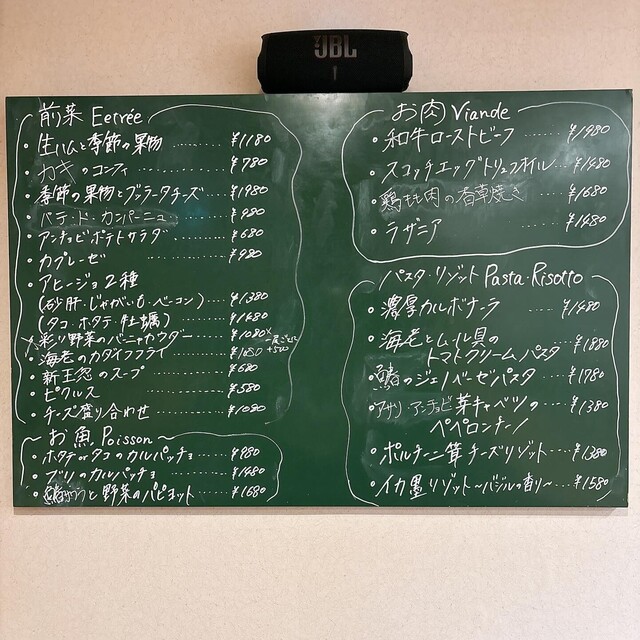 JBL
前菜 Eetrée
・生ハムと季節の果物 ...... ¥1180
・カキのコンフィ ...... ¥780
・季節の果物とブッラータチーズ ... ¥1980
・パテ・ド・カンパーニュ ...... ¥980
・アンチョビポテトサラダ ...... ¥680
・カプレーゼ ...... ¥980
・アヒージョ2種
(砂肝・じゃがいも・ベーコン) ...... ¥1380
(タコ・ホタテ・牡蠣) ...... ¥1480
×彩り野菜のバーニャカウダー ...... ¥1080×
・海老のカダイフフライ ...... ¥1080 +500
・新玉忽のスープ ...... ¥680
・ピクルス ...... ¥580
・チーズ盛り合わせ ...... ¥1080
~お魚 Poisson~
・ホタテorタコのカルパッチョ ...... ¥980
・ブリのカルパッチョ ...... ¥1480
と野菜のパピヨット ...... ¥1680
お肉 Viande
・和牛ローストビーフ ...... ¥1980
・スコッチエッグトリュフオイル ... ¥1480
・鶏もも肉の香草焼き ...... ¥1680
・ラザニア ...... ¥1480
パスタ・リゾット Pasta・Risotto
・濃厚カルボナーラ ...... ¥1480
・海老とムール貝の
トマトクリームパスタ ¥1880
のジェノベーゼパスタ ... ¥1780
・アサリ・アンチョビ 芽キャベツの ... ¥1380
ペペロンチーノ
・ポルチーニ茸チーズリゾット ... ¥1380
・イカ墨リゾット~バジルの香り~ ... ¥1580